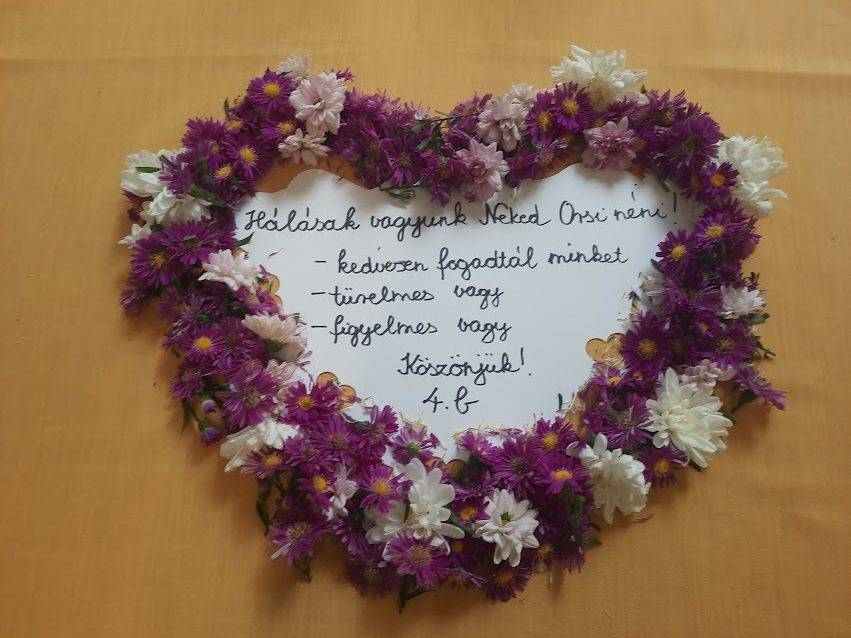 Hálásak vagyunk Neked Orsi néni!
- kedvesen fogadtál minket
- türelmes vagy
- figyelmes vagy
Köszönjük!
4. b